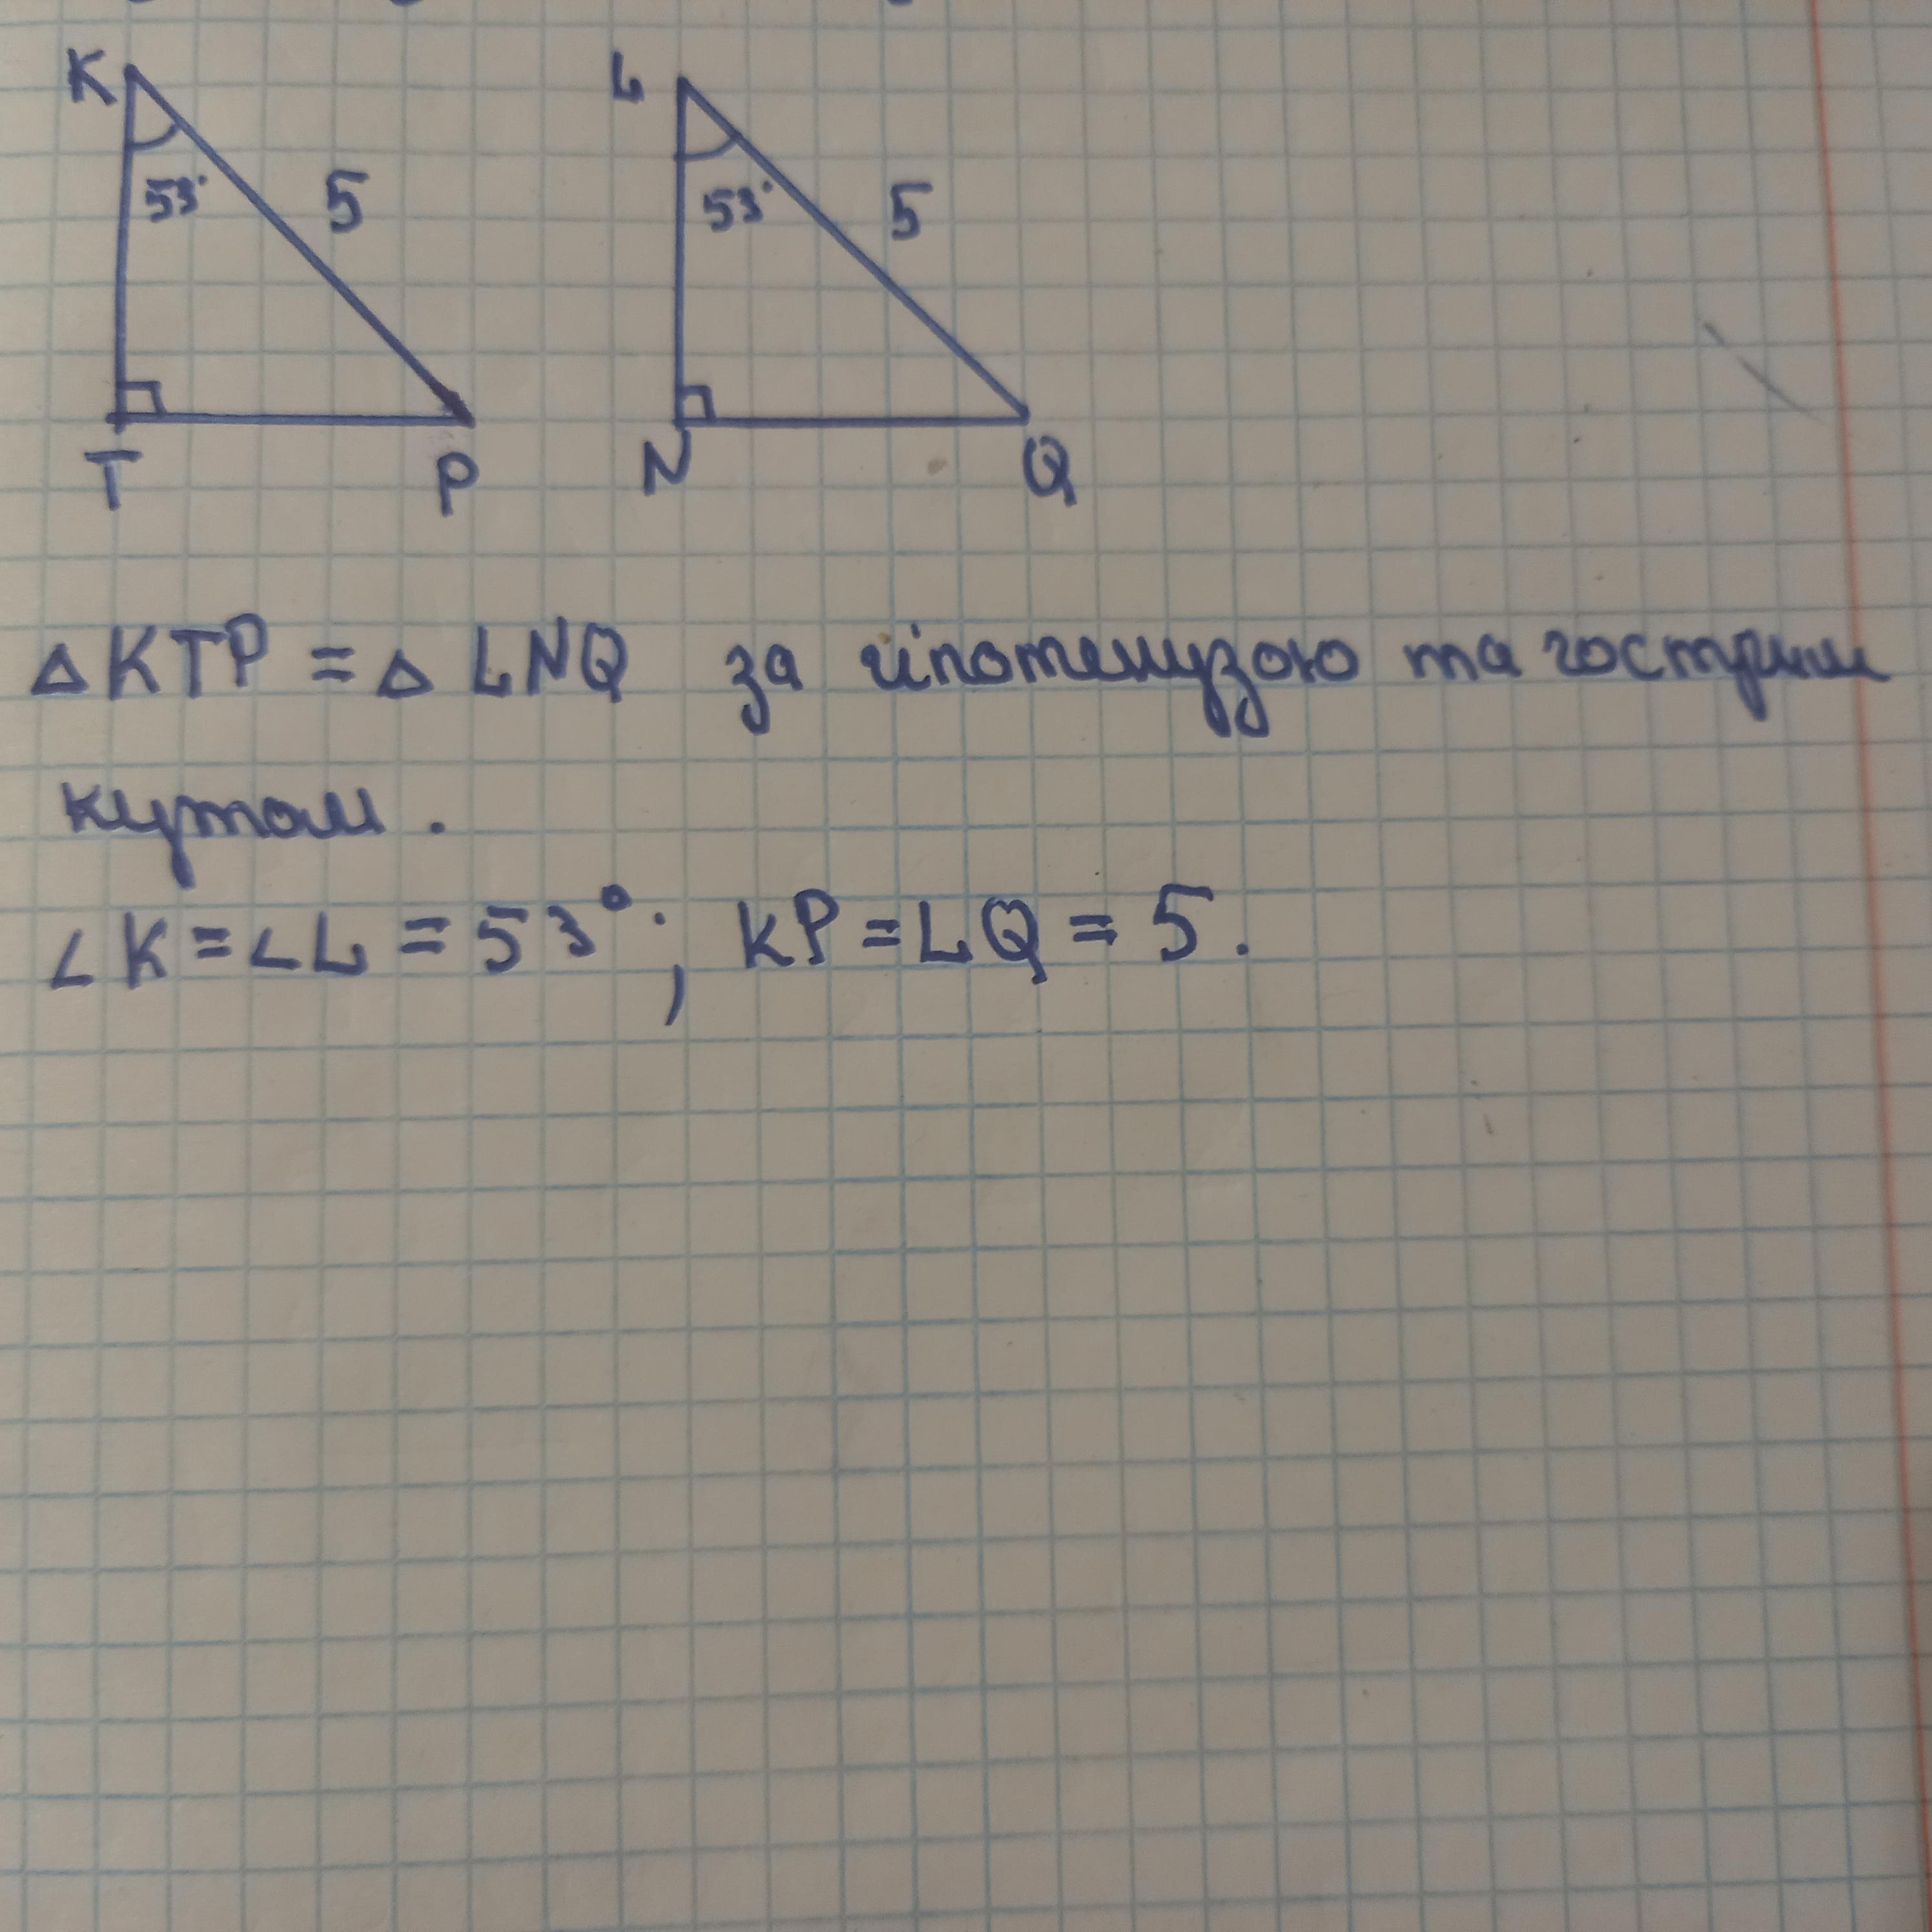 K L
53° 5 53° 5
T P N Q
△KTP = △LNQ за гіпотенузою та гострим
кутом.
∠K = ∠L = 53°; KP = LQ = 5.